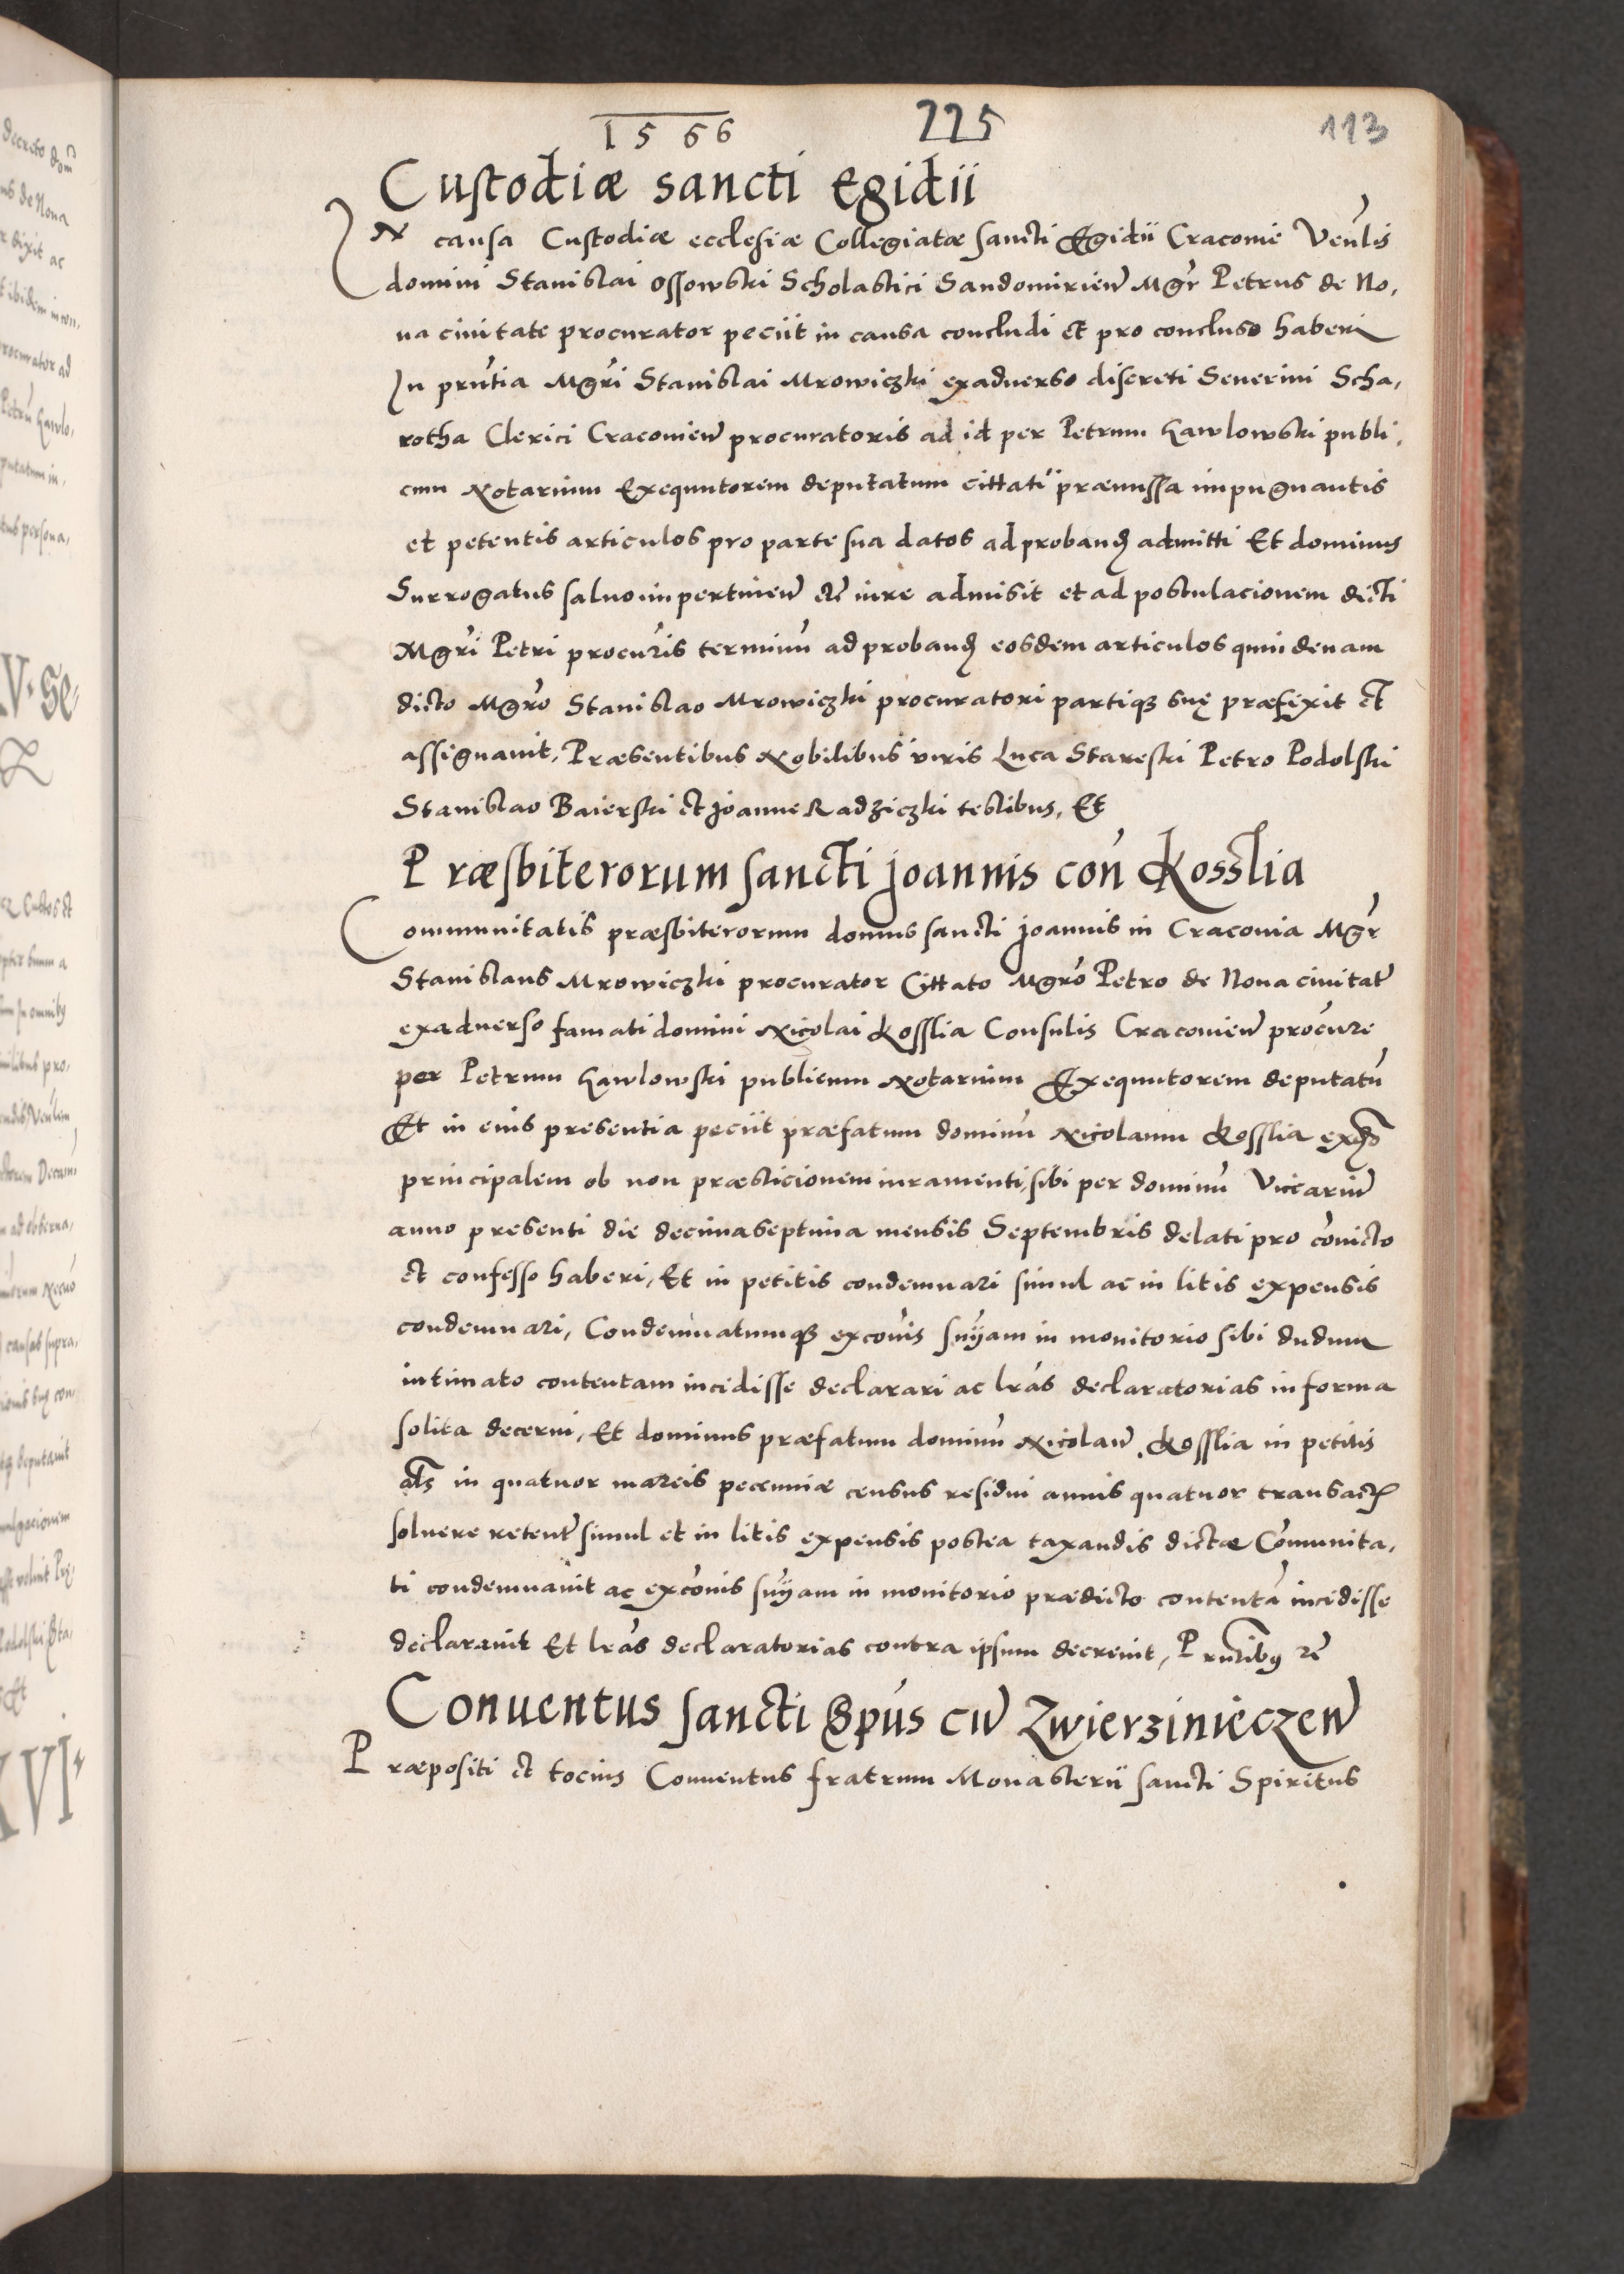 1566 225 113
Custodiæ sancti Egidii
In causa Custodiæ ecclesiæ Collegiatæ sancti Egidii Cracoviẽ Venlis
domini Stanislai Ossowski Scholastici Sandomirien̄ Mgr̃ Petrus de No,
va civitate procurator peciit in causa concludi et pro concluso haberi
In pñtia Mgr̃i Stanislai Mrowiczki exadverso discreti Severini Scha,
rotha Clerici Cracovien̄ procuratoris ad id per Petrum Hawlowski publi,
cum Notarium Exequutorem deputatum cittati præmissa impugnantis
et petentis articulos pro parte sua datos ad probanđ admitti Et dominus
Surrogatus salvo impertinen̄ etc̃ iure admisit et ad postulacionem dicti
Mgr̃i Petri procur̃is terminũ ad probanđ eosdem articulos quindenam
dicto Mgr̃o Stanislao Mrowiczki procuratori partiqꝫ suę præfixit et
assignavit, Præsentibus Nobilibus viris Luca Stareski Petro Podolski
Stanislao Baierski et Joanne Radziczki testibus, Et
Præsbiterorum sancti Joannis con̄ Kosslia
Communitatis præsbiterorum domus sancti Joannis in Cracovia Mgr̃
Stanislaus Mrowiczki procurator Cittato Mgr̃o Petro de Nova civitate
exadverso famati domini Nicolai Kosslia Consulis Cracovien̄ procur̃e
per Petrum Hawlowski publicum Notarium Exequutorem deputatũ
Et in eius presentia peciit præfatum dominũ Nicolaum Kosslia exađo
principalem ob non præsticionem iuramenti, sibi per dominũ Vicariũ
anno presenti die decimaseptima mensis Septembris delati pro cõvicto
et confesso haberi, Et in petitis condemnari simul ac in litis expensis
condemnari, Condemnatumqꝫ excõis sñiam in monitorio sibi dudum
intimato contentam incidisse declarari ac lrãs declaratorias in forma
solita decerni, Et dominus præfatum dominũ Nicolaũ Kosslia in petitis
als in quatuor marcis pecuniæ census residui annis quatuor transactꝭ
solvere retent̃ simul et in litis expensis postea taxandis dictæ Cõmunita,
ti condemnavit ac excõnis sñiam in monitorio prædicto contentã incidisse
declaravit Et lrãs declaratorias contra ipsum decrevit, Pñtibus etc̃
Conventus sancti Spũs cũ Zwierzinieczen̄
Præpositi et tocius Conventus fratrum Monasterii sancti Spiritus